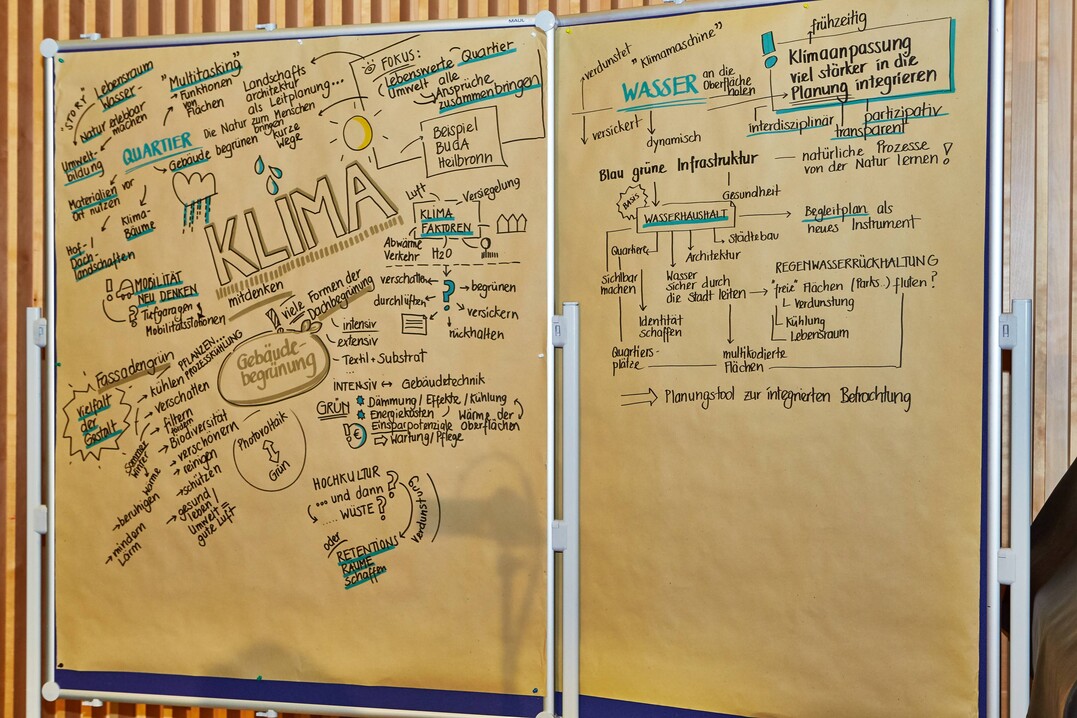 MAUL
"STORY"
Lebensraum
Wasser-
Natur erlebbar
machen
Umwelt-
bildung
Materialien vor
ort nutzen
Klima-
Bäume
Hof-/
Dach-
landschaften
"Multitasking"
Funktionen
von
Flächen
QUARTIER
Gebäude begrünen
Landschafts
architektur
als Leitplanung...
Die Natur zum Menschen
bringen
kurze
Wege
FOKUS:
Lebenswerte Quartier
Umwelt alle
Ansprüche
zusammenbringen
Beispiel
BUGA
Heilbronn
KLIMA
mitdenken
! MOBILITÄT
NEU DENKEN
Tiefgaragen
Mobilitätsstationen
Luft
Versiegelung
KLIMA
FAKTOREN
Abwärme
Verkehr
H2O
verschatten
durchlüften
?
begrünen
versickern
rückhalten
viele Formen der
Dachbegrünung
intensiv
extensiv
Textil + Substrat
Gebäude-
begrünung
Fassadengrün
PFLANZEN...
PROZESSKÜHLUNG
Vielfalt
der
Gestalt
kühlen
verschatten
filtern
Biodiversität
verschönern
reinigen
schützen
gesund
leben /
Umwelt
gute Luft
Sommer
Winter
Wärme
beruhigen
mindern
Lärm
Photovoltaik
Grün
INTENSIV ↔ Gebäudetechnik
GRÜN
Dämmung / Effekte / Kühlung
Energiekosten
Einsparpotenziale
Wärme der
Oberflächen
! €
⇒ Wartung / Pflege
HOCHKULTUR
... und dann ?
..... WÜSTE ?
Verdunstung
oder
RETENTIONS
RÄUME
schaffen
verdunstet
"Klimamaschine"
WASSER
an die
Oberfläche
holen
versickert
dynamisch
frühzeitig
! Klimaanpassung
viel stärker in die
Planung integrieren
interdisziplinär
transparent
partizipativ
Blau grüne Infrastruktur
natürliche Prozesse
von der Natur lernen !
BASIS
Gesundheit
WASSERHAUSHALT
Begleitplan als
neues Instrument
Städtebau
Quartiere
Architektur
Sichtbar
machen
Wasser
sicher durch
die Stadt leiten
REGENWASSERRÜCKHALTUNG
"freie" Flächen (Parks..) fluten ?
Verdunstung
Kühlung
Lebensraum
Identität
schaffen
Quartiers-
plätze
multikodierte
Flächen
⇒ Planungstool zur integrierten Betrachtung